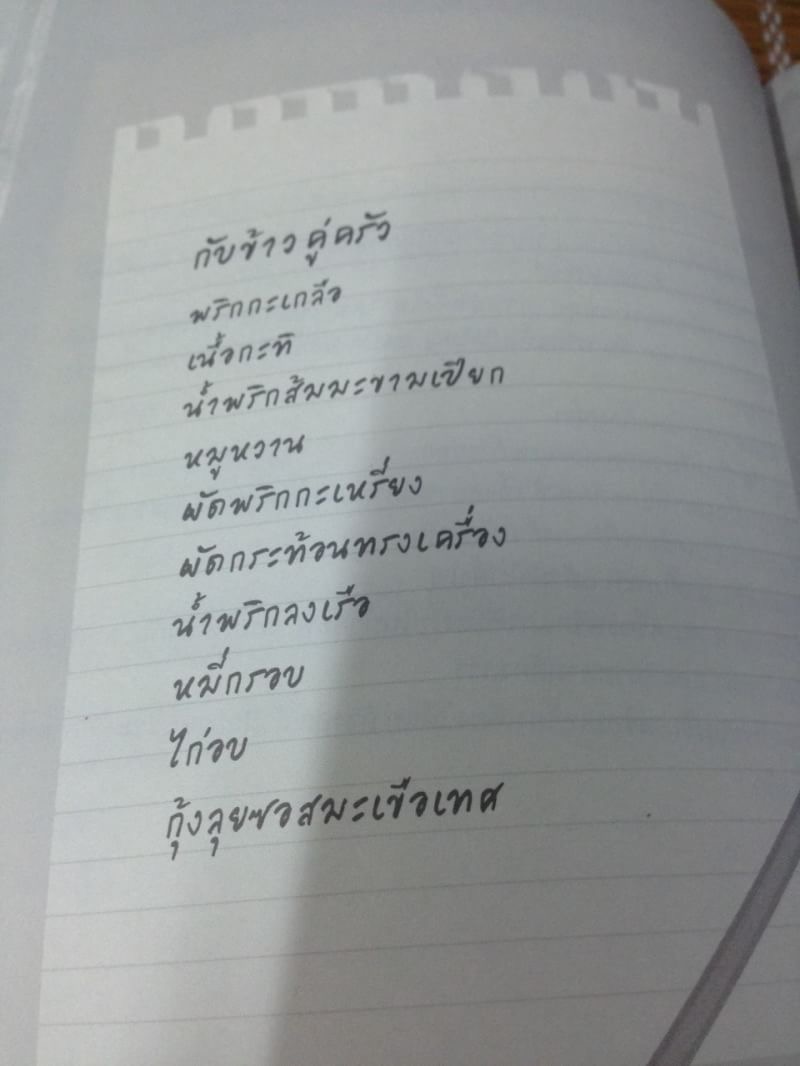 กับข้าว คู่ครัว
พริกกะเกลือ
เนื้อกะทิ
น้ำพริกส้มมะขามเปียก
หมูหวาน
ผัดพริกกะเหรี่ยง
ผัดกระท้อนทรงเครื่อง
น้ำพริกลงเรือ
หมี่กรอบ
ไก่อบ
กุ้งลุยซอสมะเขือเทศ